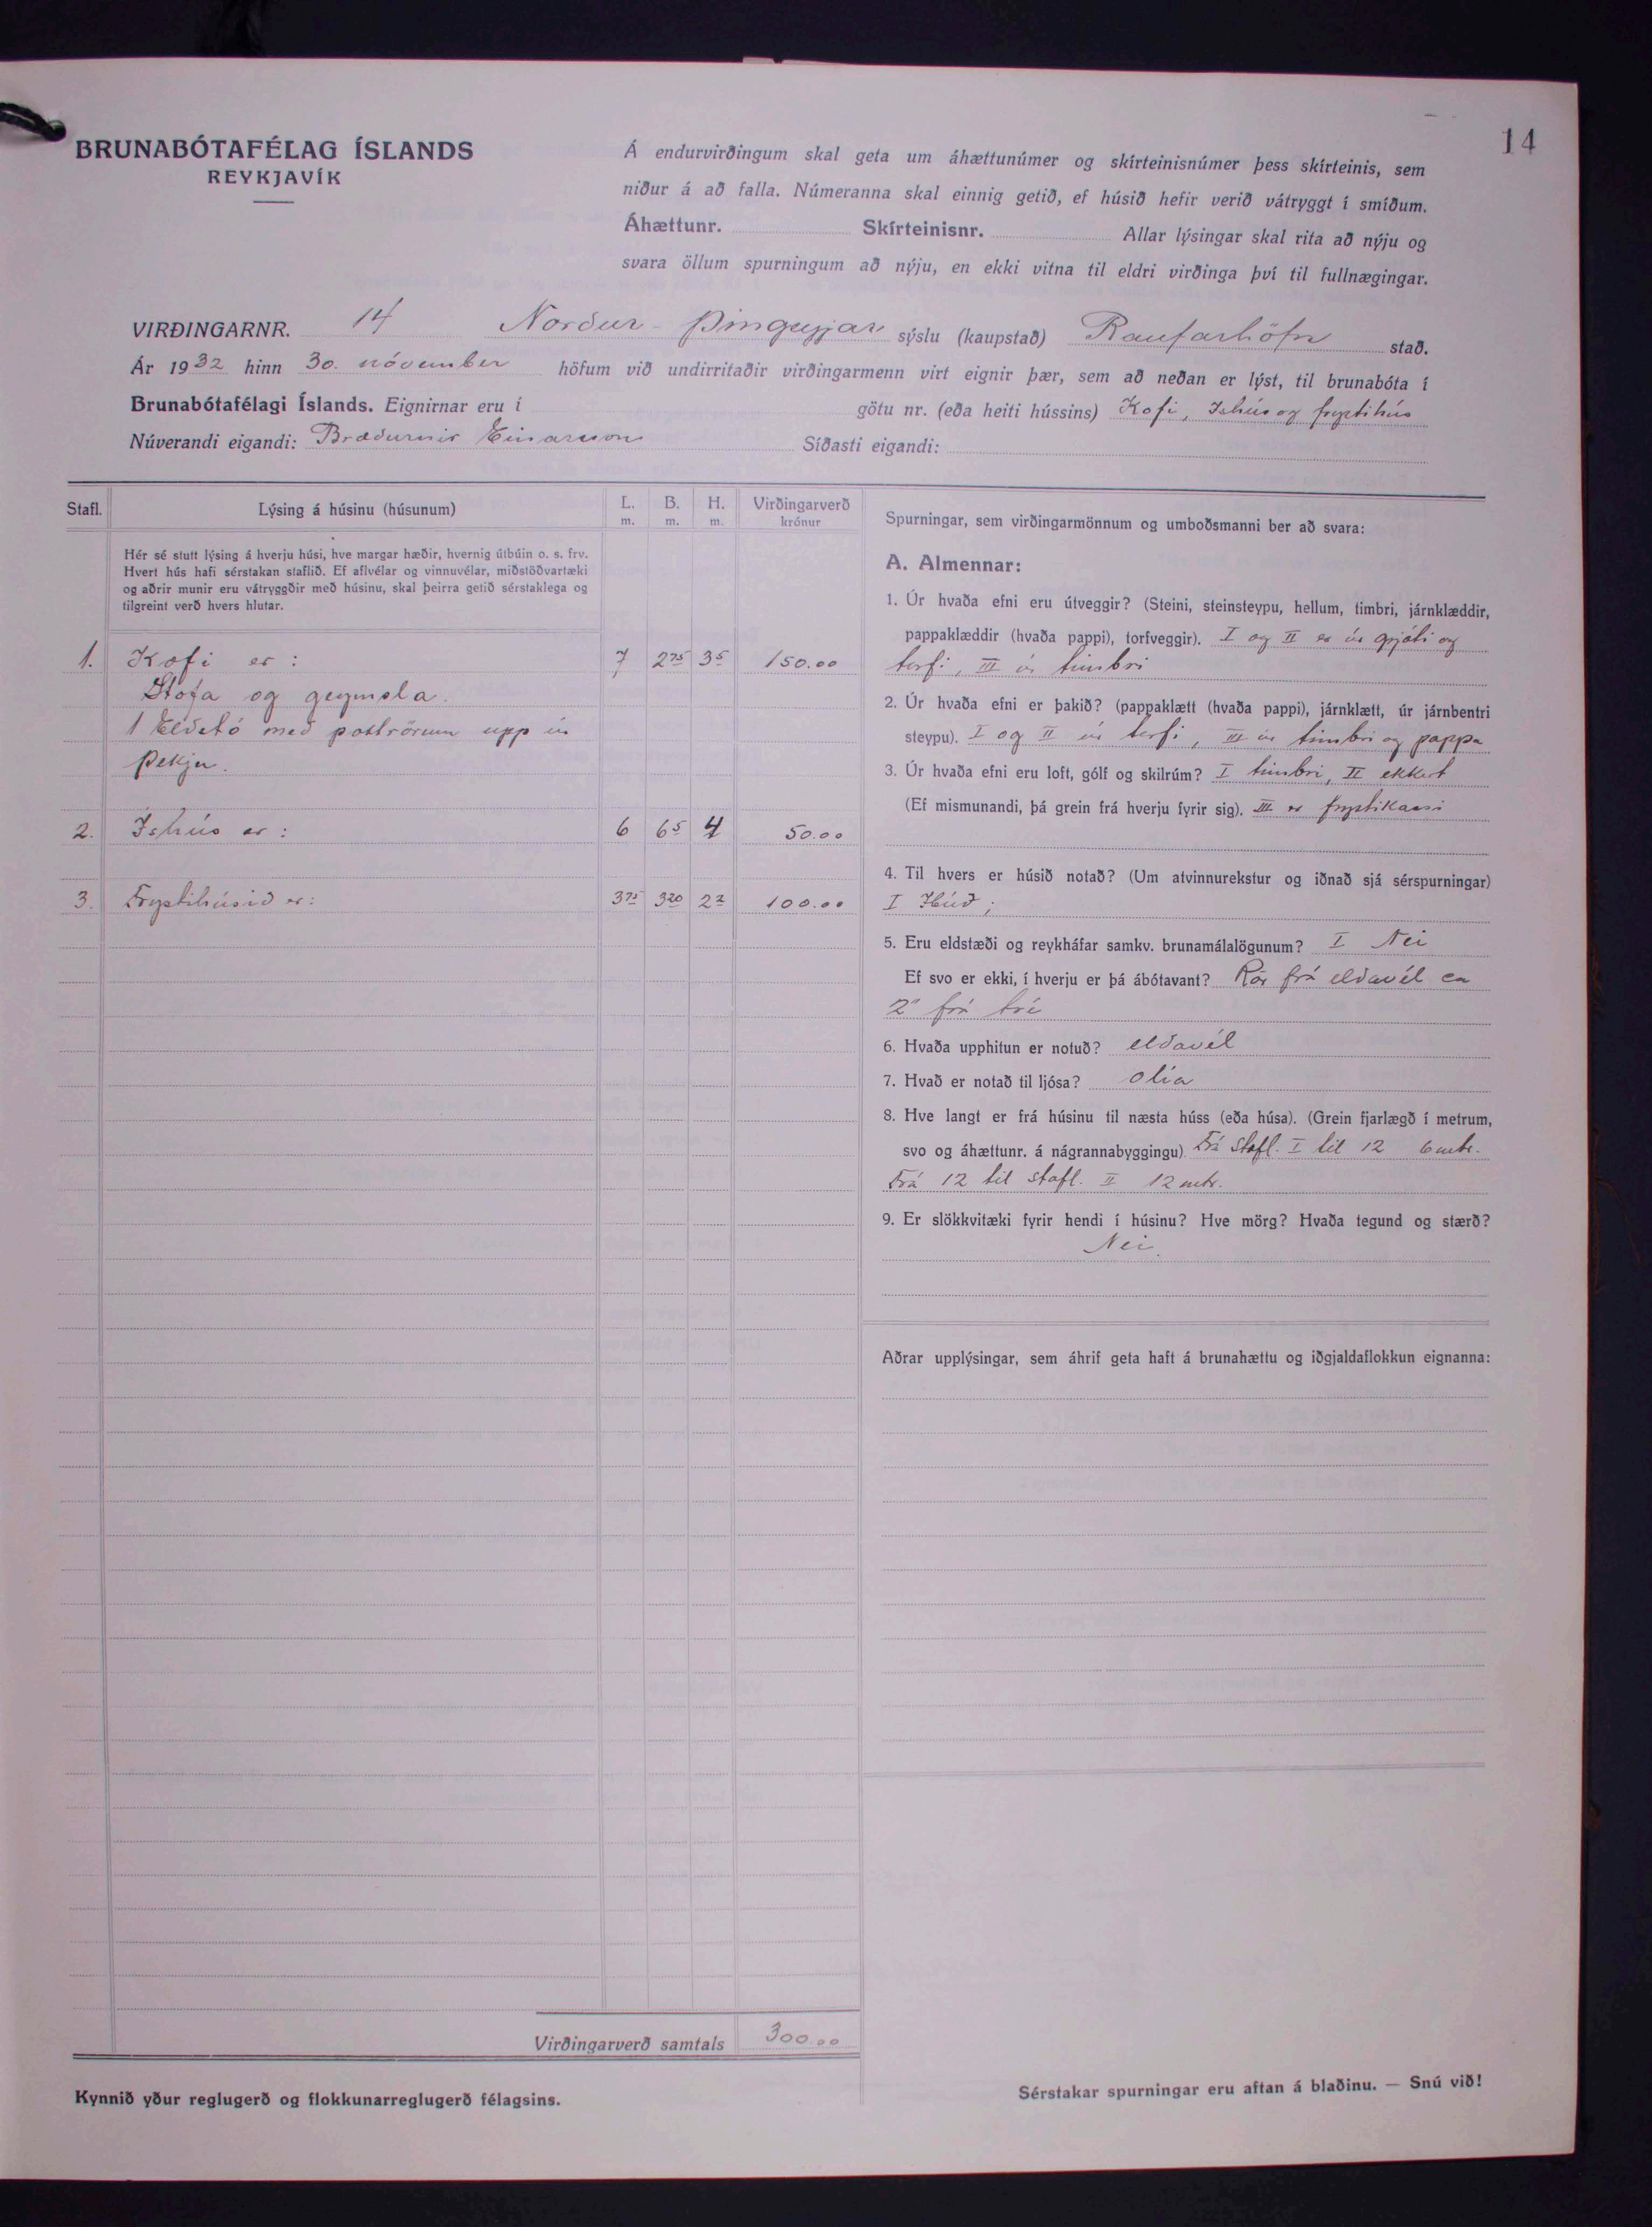 14
BRUNABÓTAFÉLAG ÍSLANDS
REYKJAVÍK
Á endurvirðingum skal geta um áhættunúmer og skírteinisnúmer þess skírteinis, sem
niður á að falla. Númeranna skal einnig getið, ef húsið hefir verið vátryggt í smíðum.
Áhættunr. Skírteinisnr. Allar lýsingar skal rita að nýju og
svara öllum spurningum að nýju, en ekki vitna til eldri virðinga því til fullnægingar.
VIRÐINGARNR. 14 Norður-Þingeyjar sýslu (kaupstað) Raufarhöfn stað.
Ár 1932 hinn 30. nóvember höfum við undirritaðir virðingarmenn virt eignir þær, sem að neðan er lýst, til brunabóta í
Brunabótafélagi Íslands. Eignirnar eru í götu nr. (eða heiti hússins) Kofi, Íshús og frystihús
Núverandi eigandi: Bræðurnir Einarsson Síðasti eigandi:
Stafl. Lýsing á húsinu (húsunum) L. m. B. m. H. m. Virðingarverð krónur
Hér sé stutt lýsing á hverju húsi, hve margar hæðir, hvernig útbúin o. s. frv.
Hvert hús hafi sérstakan staflið. Ef aflvélar og vinnuvélar, miðstöðvartæki
og aðrir munir eru vátryggðir með húsinu, skal þeirra getið sérstaklega og
tilgreint verð hvers hlutar.
1. Kofi er: 7 2 75 3 5 150.00
Stofa og geymsla.
1 Eldstó með pottrörum upp úr
þekju.
2. Íshús er: 6 6 5 4 50.00
3. Frystihúsið er: 3 75 3 20 2 2 100.00
Virðingarverð samtals 300.00
Kynnið yður reglugerð og flokkunarreglugerð félagsins.
Spurningar, sem virðingarmönnum og umboðsmanni ber að svara:
A. Almennar:
1. Úr hvaða efni eru útveggir? (Steini, steinsteypu, hellum, timbri, járnklæddir,
pappaklæddir (hvaða pappi), torfveggir). I og II er úr grjóti og
torfi, III úr timbri
2. Úr hvaða efni er þakið? (pappaklætt (hvaða pappi), járnklætt, úr járnbentri
steypu). I og II úr torfi, III úr timbri og pappa
3. Úr hvaða efni eru loft, gólf og skilrúm? I timbri, II ekkert
(Ef mismunandi, þá grein frá hverju fyrir sig). III er frystikassi
4. Til hvers er húsið notað? (Um atvinnurekstur og iðnað sjá sérspurningar)
I
5. Eru eldstæði og reykháfar samkv. brunamálalögunum? I Nei
Ef svo er ekki, í hverju er þá ábótavant? Rör frá eldavél ca
2" frá tré
6. Hvaða upphitun er notuð? eldavél
7. Hvað er notað til ljósa? olía
8. Hve langt er frá húsinu til næsta húss (eða húsa). (Grein fjarlægð í metrum,
svo og áhættunr. á nágrannabyggingu) Frá Stafl. I til 12 6 mtr.
Frá 12 til stafl. II 12 mtr.
9. Er slökkvitæki fyrir hendi í húsinu? Hve mörg? Hvaða tegund og stærð?
Nei.
Aðrar upplýsingar, sem áhrif geta haft á brunahættu og iðgjaldaflokkun eignanna:
Sérstakar spurningar eru aftan á blaðinu. — Snú við!